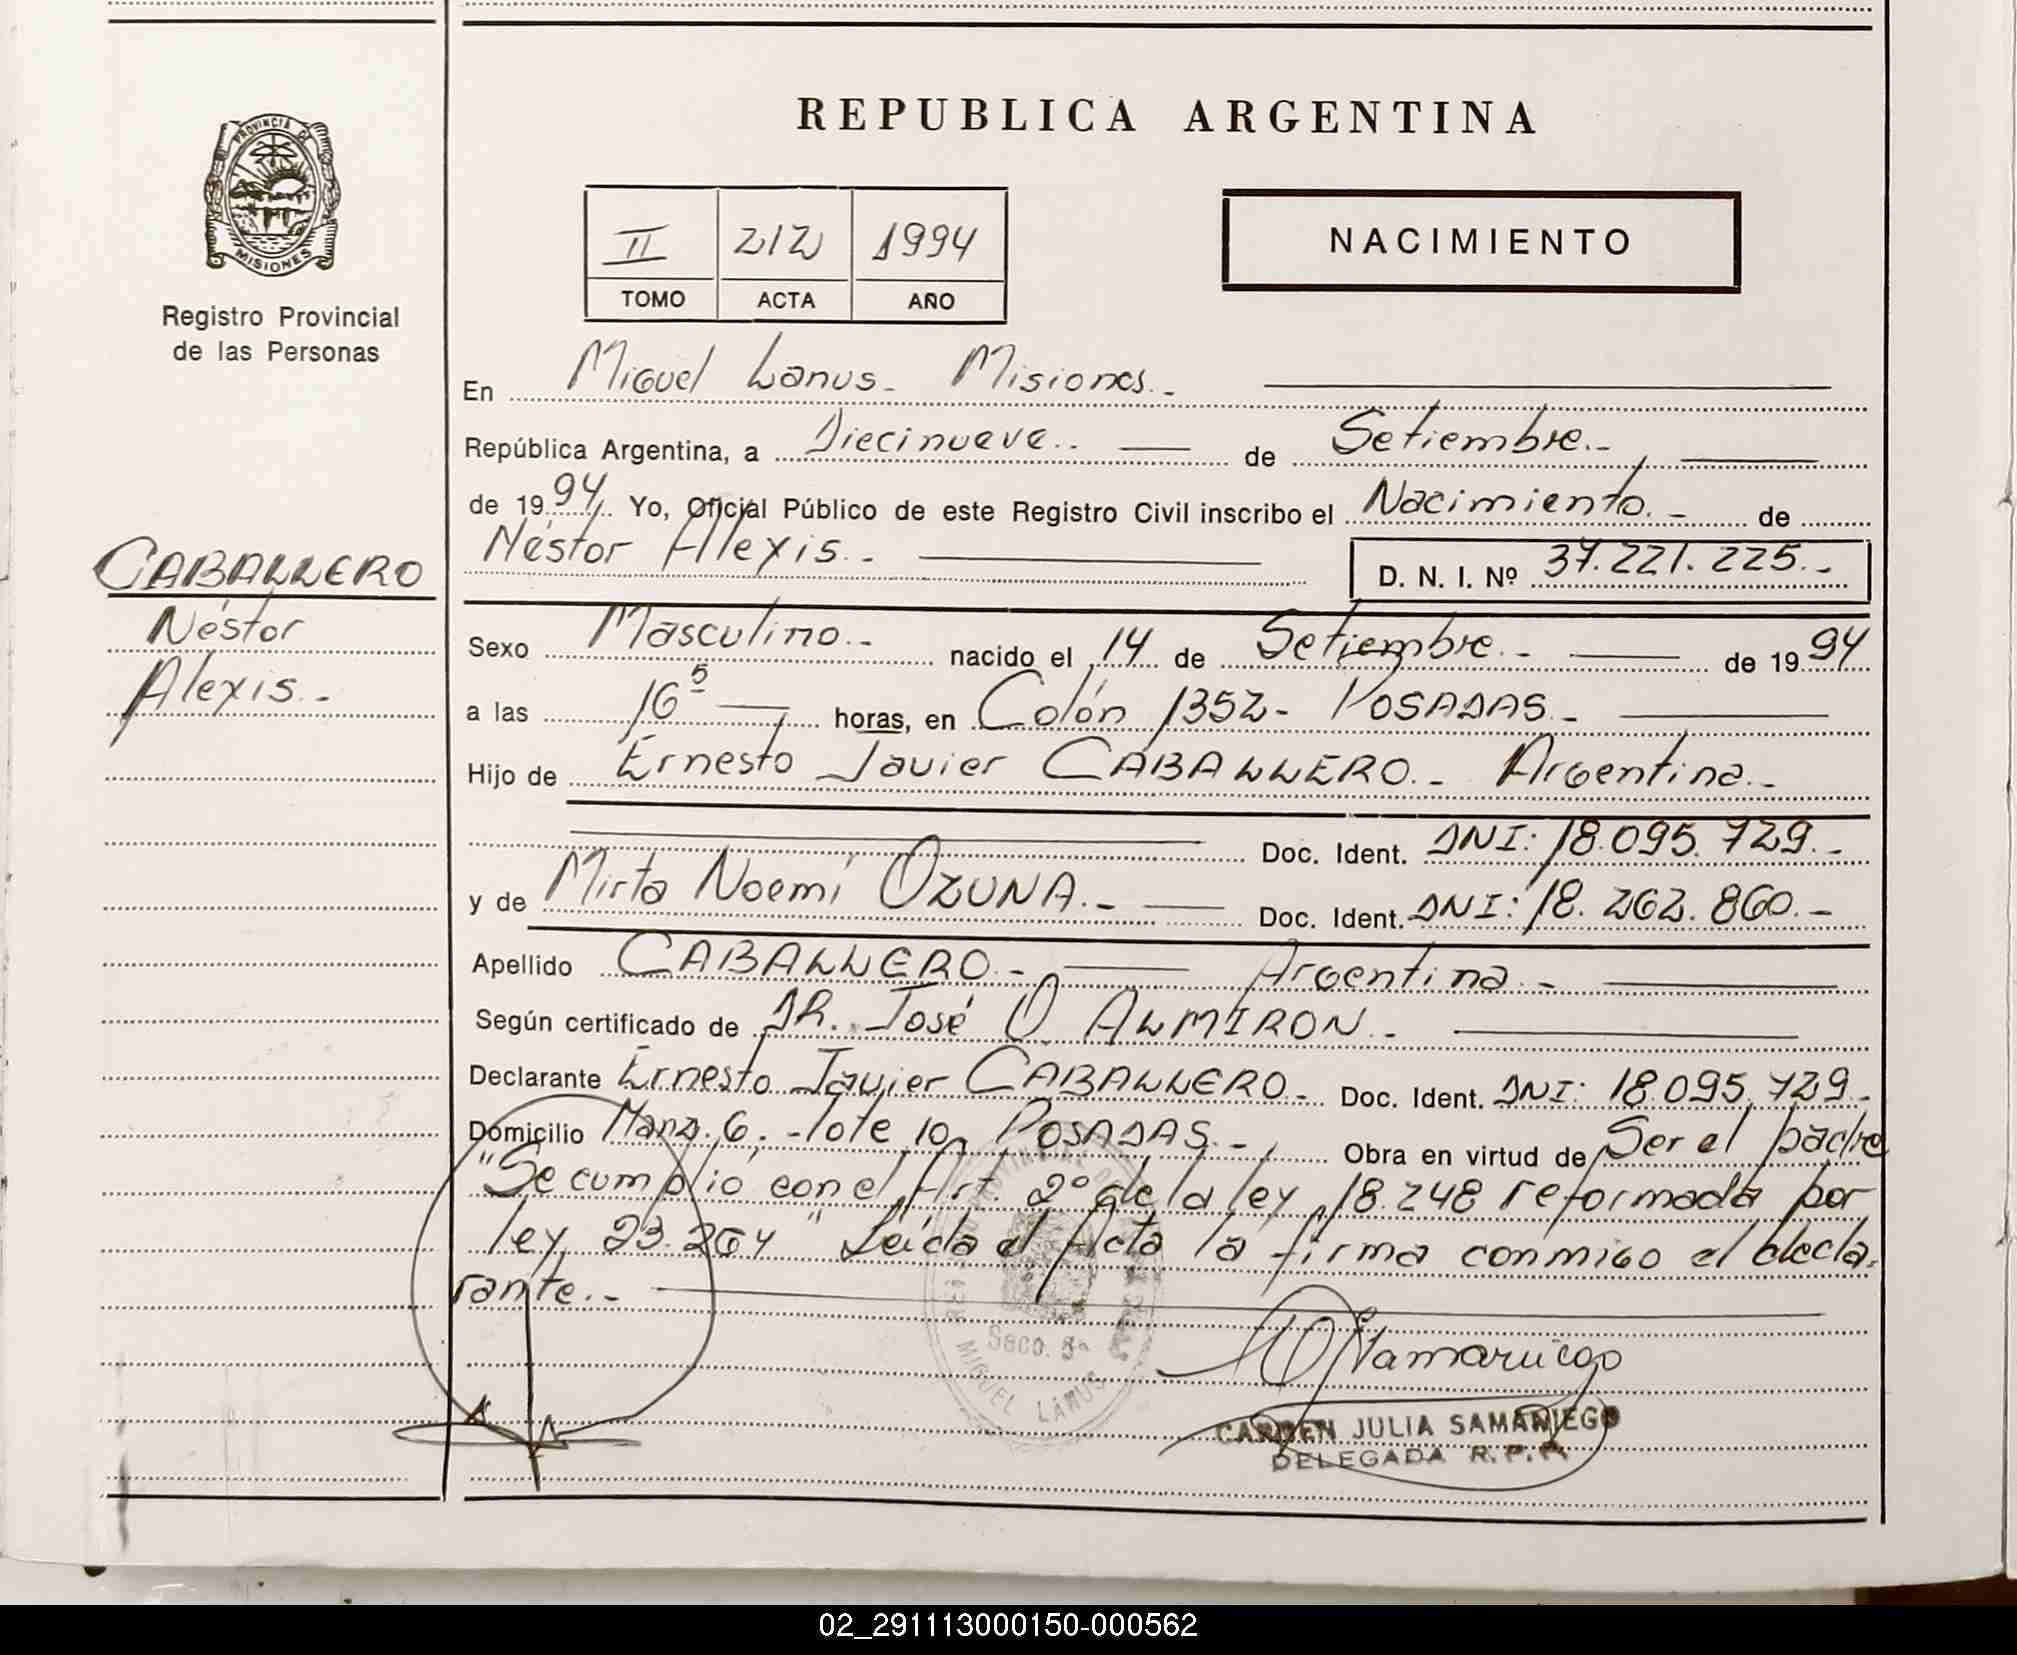 REPUBLICA ARGENTINA
PROVINCIA DE MISIONES
Registro Provincial
de las Personas
II 212 1994
TOMO ACTA AÑO
NACIMIENTO
En Miguel Lanus - Misiones.-
República Argentina, a Diecinueve.- de Setiembre.-
de 1994. Yo, Oficial Público de este Registro Civil inscribo el Nacimiento.- de
Néstor Alexis.- D. N. I. Nº 37.221.225.-
CABALLERO
Néstor
Alexis.-
Sexo Masculino.- nacido el 14 de Setiembre.- de 1994
a las 16 5 horas, en Colón 1352- POSADAS.-
Hijo de Ernesto Javier CABALLERO.- Argentina.-
Doc. Ident. DNI: 18.095.729.-
y de Mirta Noemí OZUNA.- Doc. Ident. DNI: 18.262.860.-
Apellido CABALLERO.- Argentina.-
Según certificado de DR. José O ALMIRON.-
Declarante Ernesto Javier CABALLERO.- Doc. Ident. DNI: 18.095.729.-
Domicilio Manz. 6. - lote 10, POSADAS.- Obra en virtud de Ser el padre
"Se cumplió con el Art. 2º de la ley 18.248 reformada por
ley 23.264" Leída el Acta la firma conmigo el decla-
rante.-
Secc. 3ª
MIGUEL LANUS
CARMEN JULIA SAMANIEGO
DELEGADA R.P.P.
02_291113000150-000562